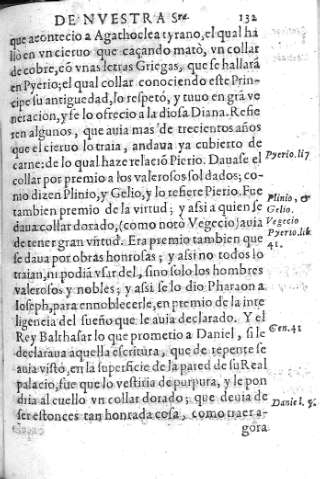 DE NVESTRA Sra. 132
que acontecio a Agathoclea tyrano, el qual ha
llo en vn cieruo que caçando matò, vn collar
de cobre, cõ vnas letras Griegas, que se hallarà
en Pyerio; el qual collar conociendo este Prin-
cipe su antiguedad, lo respetó, y tuuo en grã ve
neracion, y se lo ofrecio a la diosa Diana. Refie
ren algunos, que auia mas de trecientos años
que el cieruo lo traia, andaua ya cubierto de
carne: de lo qual haze relaciõ Pierio. Dauase el
Pyerio. li 7
collar por premio a los valerosos soldados; co-
mo dizen Plinio, y Gelio, y lo refiere Pierio. Fue
Plinio, &
tambien premio de la virtud; y assi a quien se
Gelio.
daua collar dorado, (como notò Vegecio) auia
Vegecio
de tener gran virtud. Era premio tambien que
Pyerio lib.
se daua por obras honrosas; y assi no todos lo
41.
traian, ni podiã vsar del, sino solo los hombres
valerosos y nobles; y assi se lo dio Pharaon a
Ioseph, para ennoblecerle, en premio de la inte
ligencia del sueño que le auia declarado. Y el
Rey Balthasar lo que prometio a Daniel, si le
Gen. 41
declaraua aquella escritura, que de repente se
auia visto, en la superficie de la pared de su Real
palacio, fue que lo vestiria de purpura, y le pon
dria al cuello vn collar dorado; que deuia de
Daniel. 5.
ser estonces tan honrada cosa, como traer a-
gora